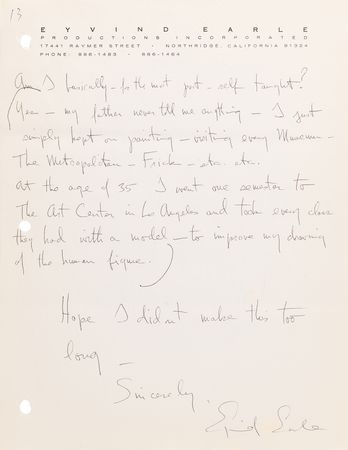 13
EYVIND EARLE
PRODUCTIONS INCORPORATED
17441 RAYMER STREET · NORTHRIDGE, CALIFORNIA 91324
PHONE: 886-1483 · 886-1484
Am I basically - for the most part - self taught?
Yes - my father never told me anything - I just
simply kept on painting - visiting every Museum -
The Metropolitan - Frick - etc. etc.
At the age of 35 I went one semester to
The Art Center in Los Angeles and took every class
they had with a model - to improve my drawing
of the human figure.)
Hope I didn't make this too
long -
Sincerely,
Eyvind Earle